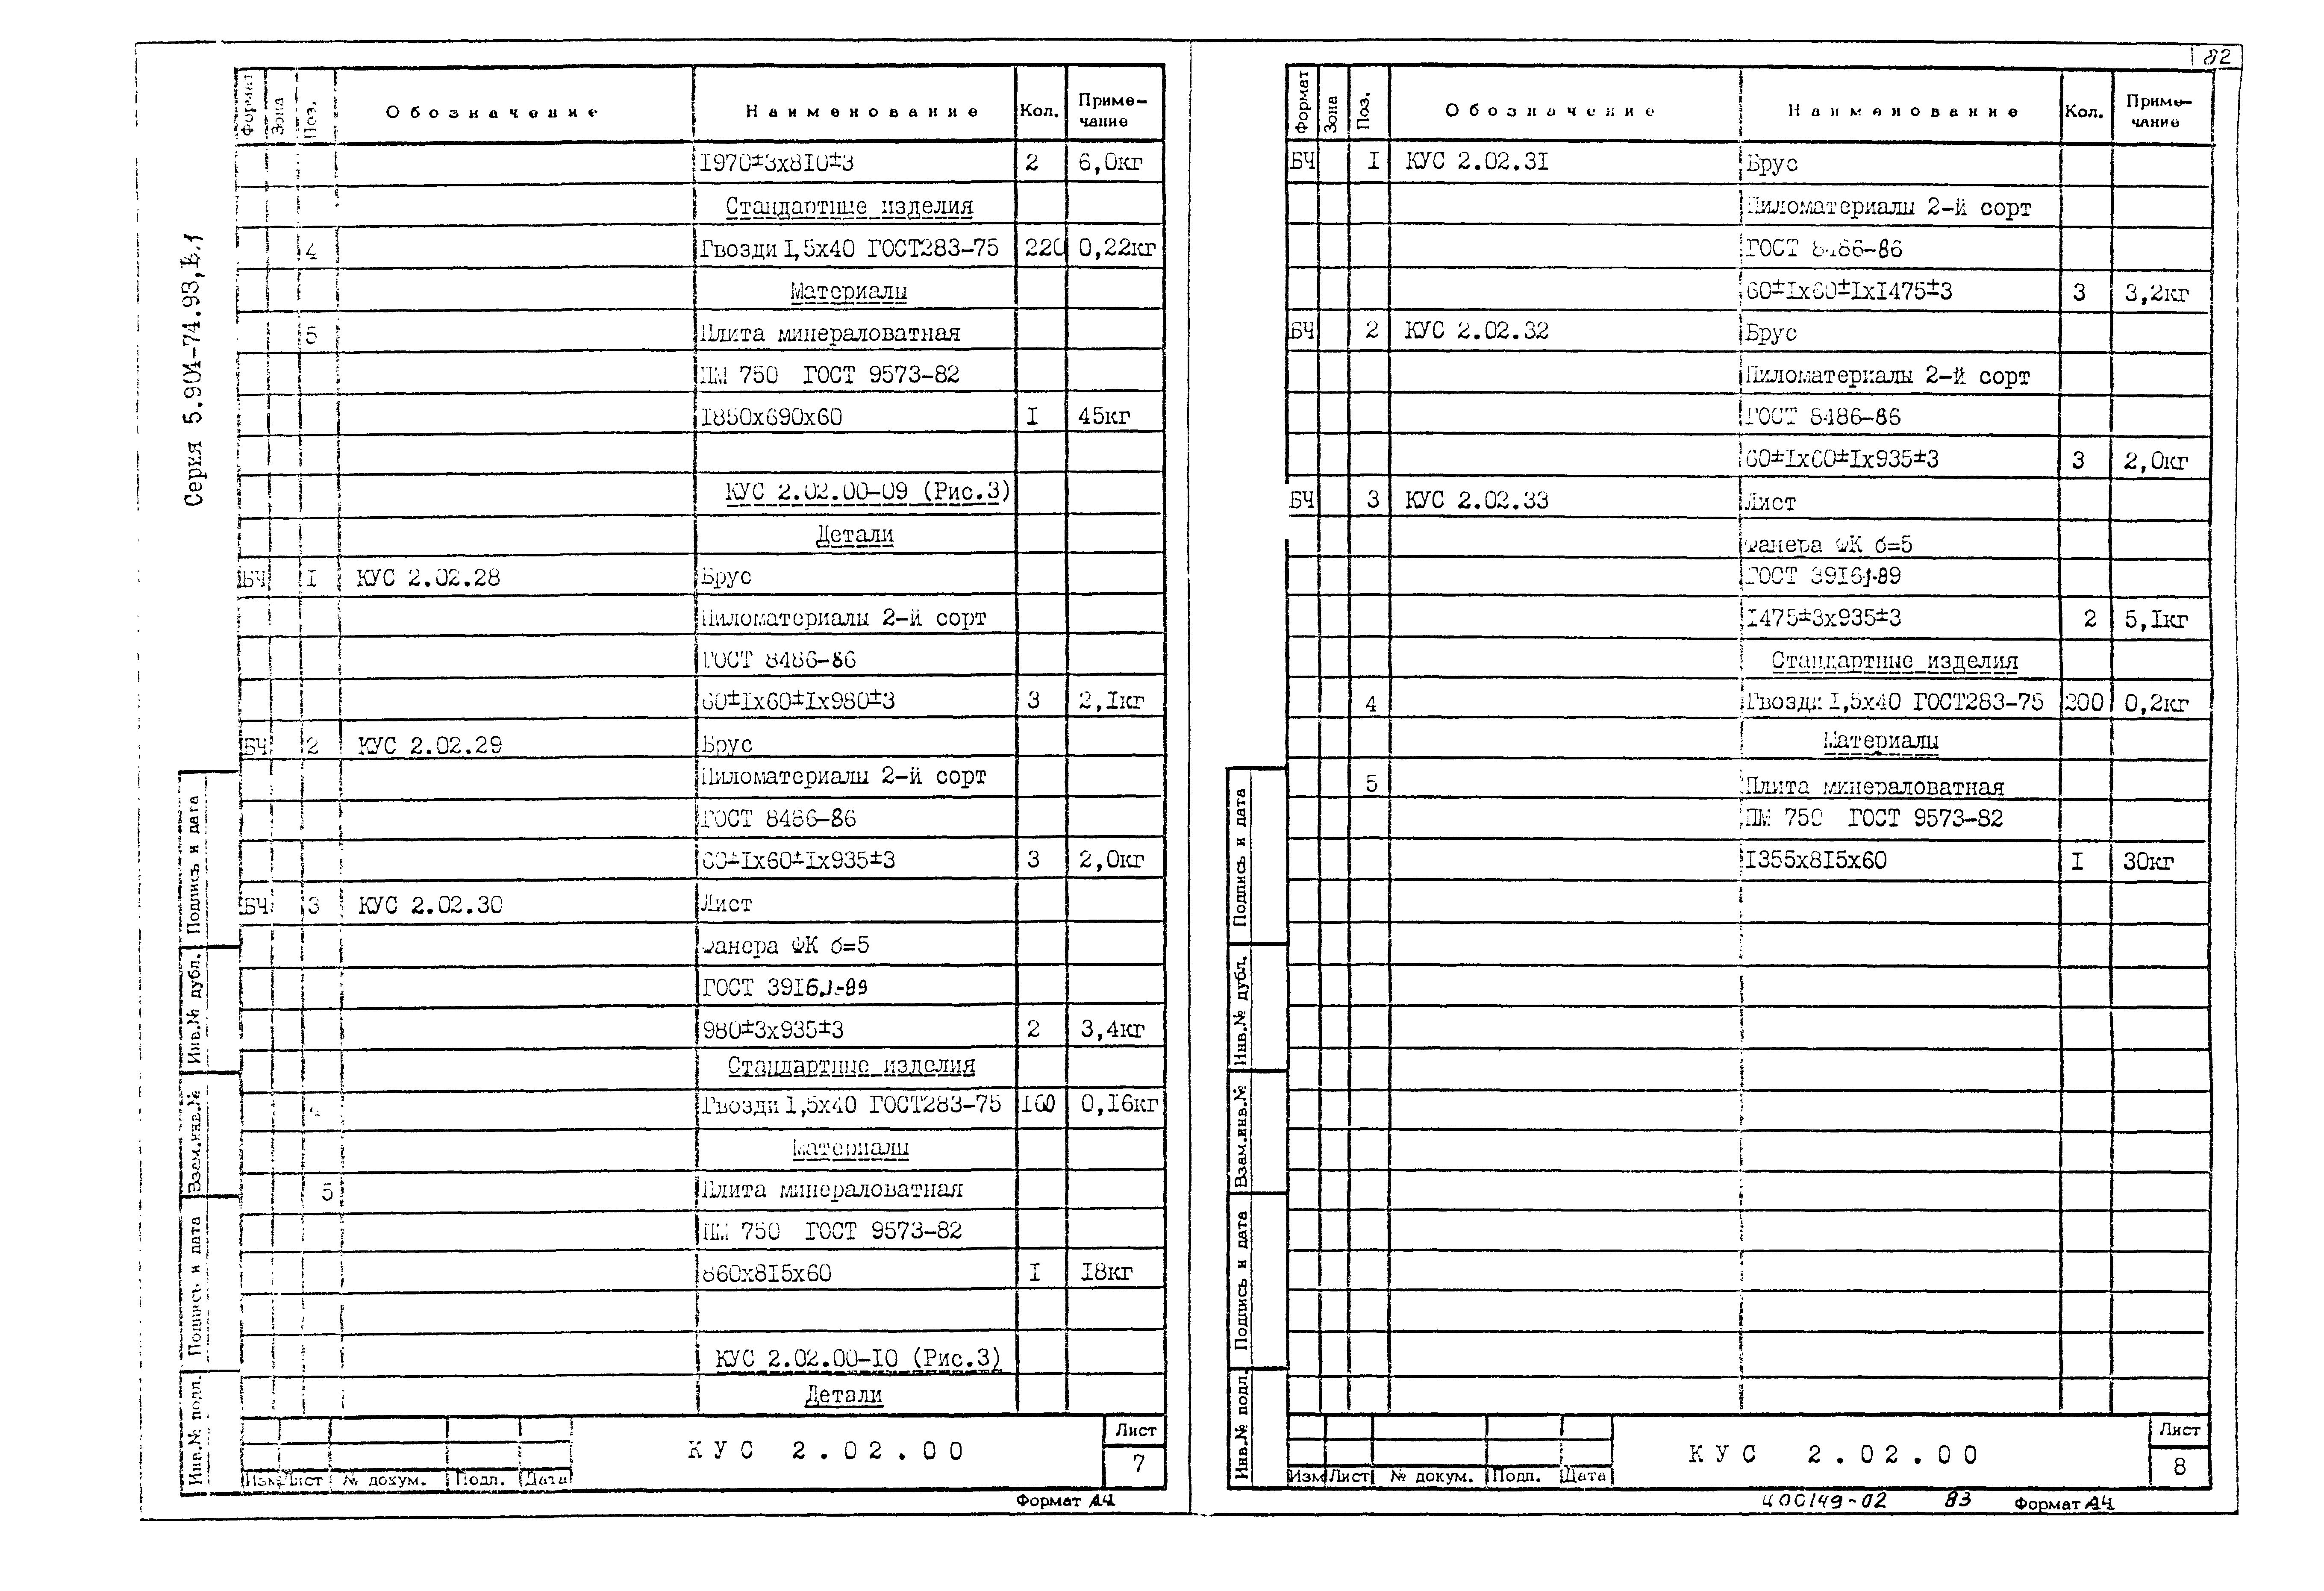 82
Серия 5.904-74.93, В.1
Формат Зона Поз. Обозначение Наименование Кол. Приме-
чание
1970±3х810±3 2 6,0кг
Стандартные изделия
4 Гвозди 1,5х40 ГОСТ283-75 220 0,22кг
Материалы
5 Плита минераловатная
ПМ 750 ГОСТ 9573-82
1850х690х60 1 45кг
КУС 2.02.00-09 (Рис.3)
Детали
БЧ 1 КУС 2.02.28 Брус
Пиломатериалы 2-й сорт
ГОСТ 8486-86
60±1х60±1х980±3 3 2,1кг
БЧ 2 КУС 2.02.29 Брус
Пиломатериалы 2-й сорт
ГОСТ 8486-86
60±1х60±1х935±3 3 2,0кг
БЧ 3 КУС 2.02.30 Лист
Фанера ФК б=5
ГОСТ 3916.1-89
980±3х935±3 2 3,4кг
Стандартные изделия
4 Гвозди 1,5х40 ГОСТ283-75 160 0,16кг
Материалы
5 Плита минераловатная
ПМ 750 ГОСТ 9573-82
860х815х60 1 18кг
КУС 2.02.00-10 (Рис.3)
Детали
Подпись и дата
Инв.№ дубл.
Взам.инв.№
Подпись и дата
Инв.№ подл.
Изм Лист № докум. Подп. Дата
КУС 2.02.00
Лист
7
Формат А4
Формат Зона Поз. Обозначение Наименование Кол. Приме-
чание
БЧ 1 КУС 2.02.31 Брус
Пиломатериалы 2-й сорт
ГОСТ 8486-86
60±1х60±1х1475±3 3 3,2кг
БЧ 2 КУС 2.02.32 Брус
Пиломатериалы 2-й сорт
ГОСТ 8486-86
60±1х60±1х935±3 3 2,0кг
БЧ 3 КУС 2.02.33 Лист
Фанера ФК б=5
ГОСТ 3916.1-89
1475±3х935±3 2 5,1кг
Стандартные изделия
4 Гвозди 1,5х40 ГОСТ283-75 200 0,2кг
Материалы
5 Плита минераловатная
ПМ 750 ГОСТ 9573-82
1355х815х60 1 30кг
Подпись и дата
Инв.№ дубл.
Взам.инв.№
Подпись и дата
Инв.№ подл.
Изм Лист № докум. Подп. Дата
КУС 2.02.00
Лист
8
ЦОС149-02 83 Формат А4